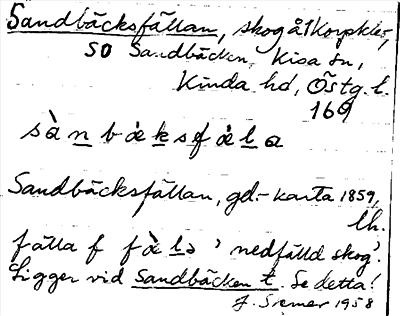 Sandbäcksfällan, skog å 1 Korpklev,
SO Sandbäcken, Kisa sn,
Kinda hd, Östg. l.
169
sànbäksfä̀la
Sandbäcksfällan, gd.-karta 1859,
lh.
fälla f fä̀lə 'nedfälld skog'.
Ligger vid Sandbäcken t. Se detta!
1958